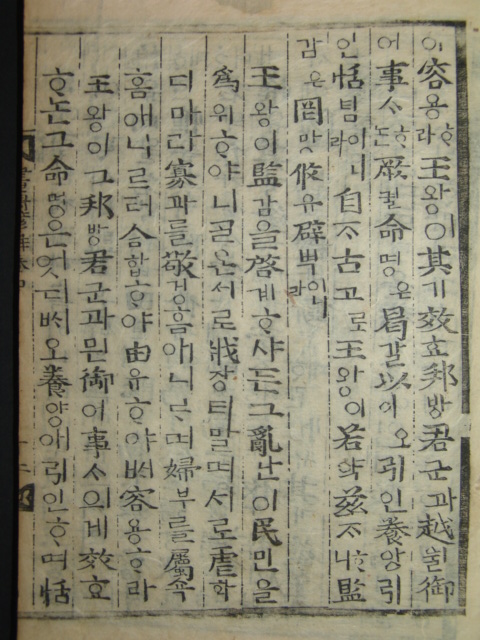 이容용ᄒᆞ라王왕이其기效효邦방君군과越월御
어事ᄉᆞᄂᆞᆫ厥궐命명은曷갈以이오引인養양引
인恬념이니라自ᄌᆞ古고로王왕이若약玆ᄌᆞᄒᆞ니監
감은罔망攸유辟벽이니라
王왕이監감을啓계ᄒᆞ샤든그亂난이民민을
爲위ᄒᆞ야니ᄀᆞᆯ온서로戕장티말며서로虐학
디마라寡과를敬경홈애니르며婦부를屬쵹
홈애니르러合합ᄒᆞ야由유ᄒᆞ야ᄡᅥ容용ᄒᆞ라
王왕이그邦방君군과믿御어事ᄉᆞ의게效효
ᄒᆞ논그命명은엇디ᄡᅥ오養양애引인ᄒᆞ며恬